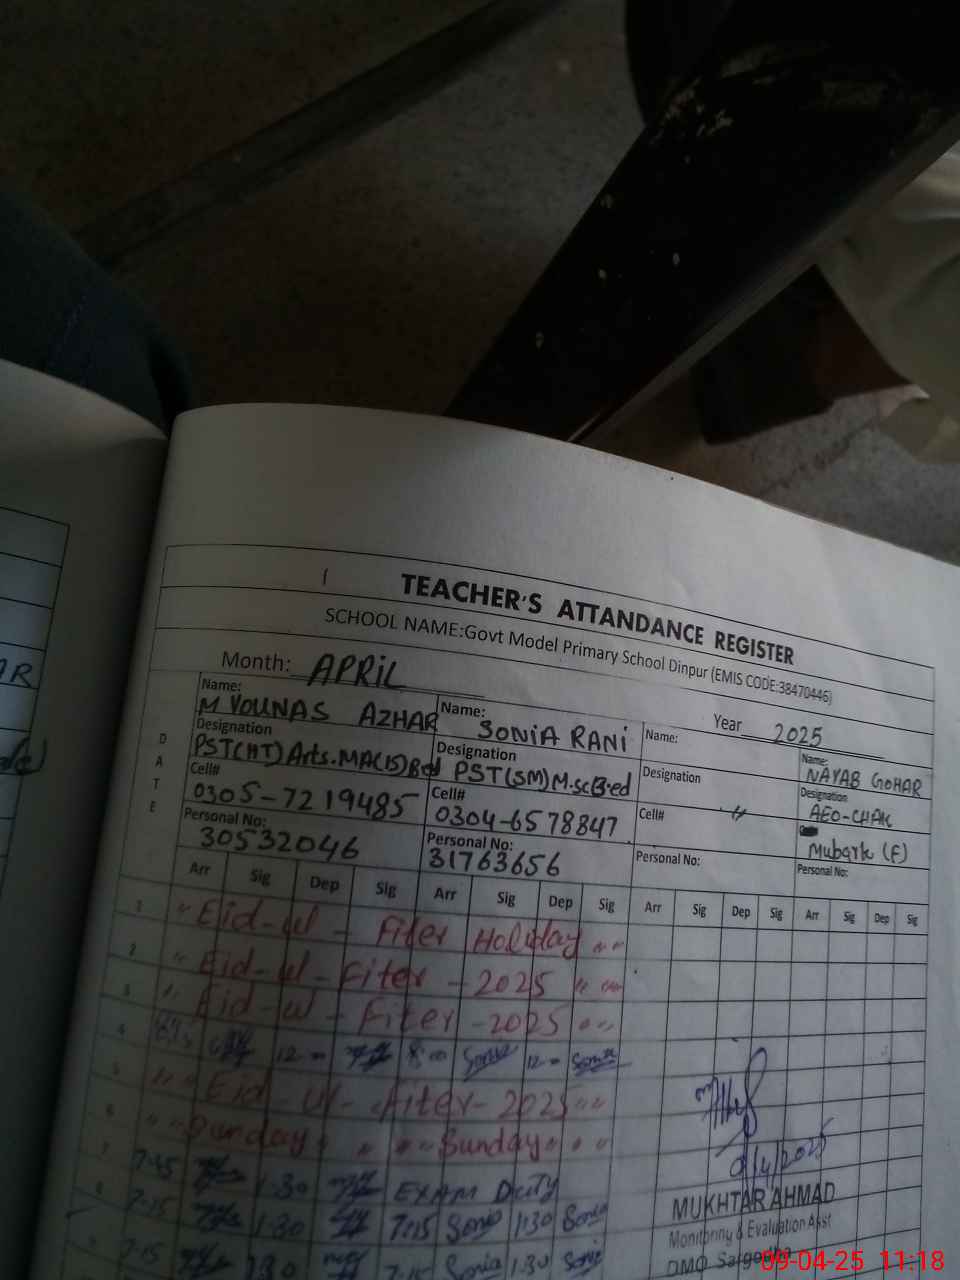 TEACHER'S ATTANDANCE REGISTER
SCHOOL NAME:Govt Model Primary School Dinpur (EMIS CODE:38470446)
Month: APRIL Year 2025
Name: M YOUNAS AZHAR Name: SONIA RANI Name: Name: NAYAB GOHAR
Designation PST(HT) Arts. Designation PST(SM) M.sc B-ed Designation Designation AEO-CHAK
Cell# 0305-7219485 Cell# 0304-6578847 Cell# Mubark (F)
Personal No: 30532046 Personal No: 31763656 Personal No: Personal No:
DATE
Arr Sig Dep Sig Arr Sig Dep Sig Arr Sig Dep Sig Arr Sig Dep Sig
1 " Eid-ul-Fiter Holiday " "
2 " Eid-ul-Fiter -2025 " "
3 " Eid-ul-Fiter -2025 " "
4 12- 8:00 Sonia 12- Sonia
5 " " Eid ul-fiter-2025 " "
6 " " Sunday " " " Sunday " " "
7 1:30 EXAM Duty
8 7:15 1:30 7:15 Sonia 1:30 Sonia
7:15 1:30 7:15 Sonia 1:30 Soni
9/4/2025
MUKHTAR AHMAD
Monitoring & Evaluation Asst
DMO Sargodha
09-04-25 11:18